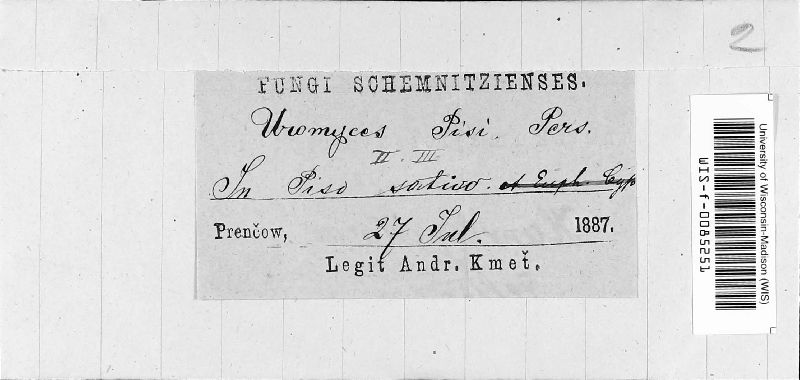 2
FUNGI SCHEMNITZIENSES.
Uromyces Pisi. Pers.
II. III
In Piso sativo. et Euph. Cyp
Prenčow, 27 Jul. 1887.
Legit Andr. Kmeť.
University of Wisconsin-Madison (WIS)
WIS-f-0085251